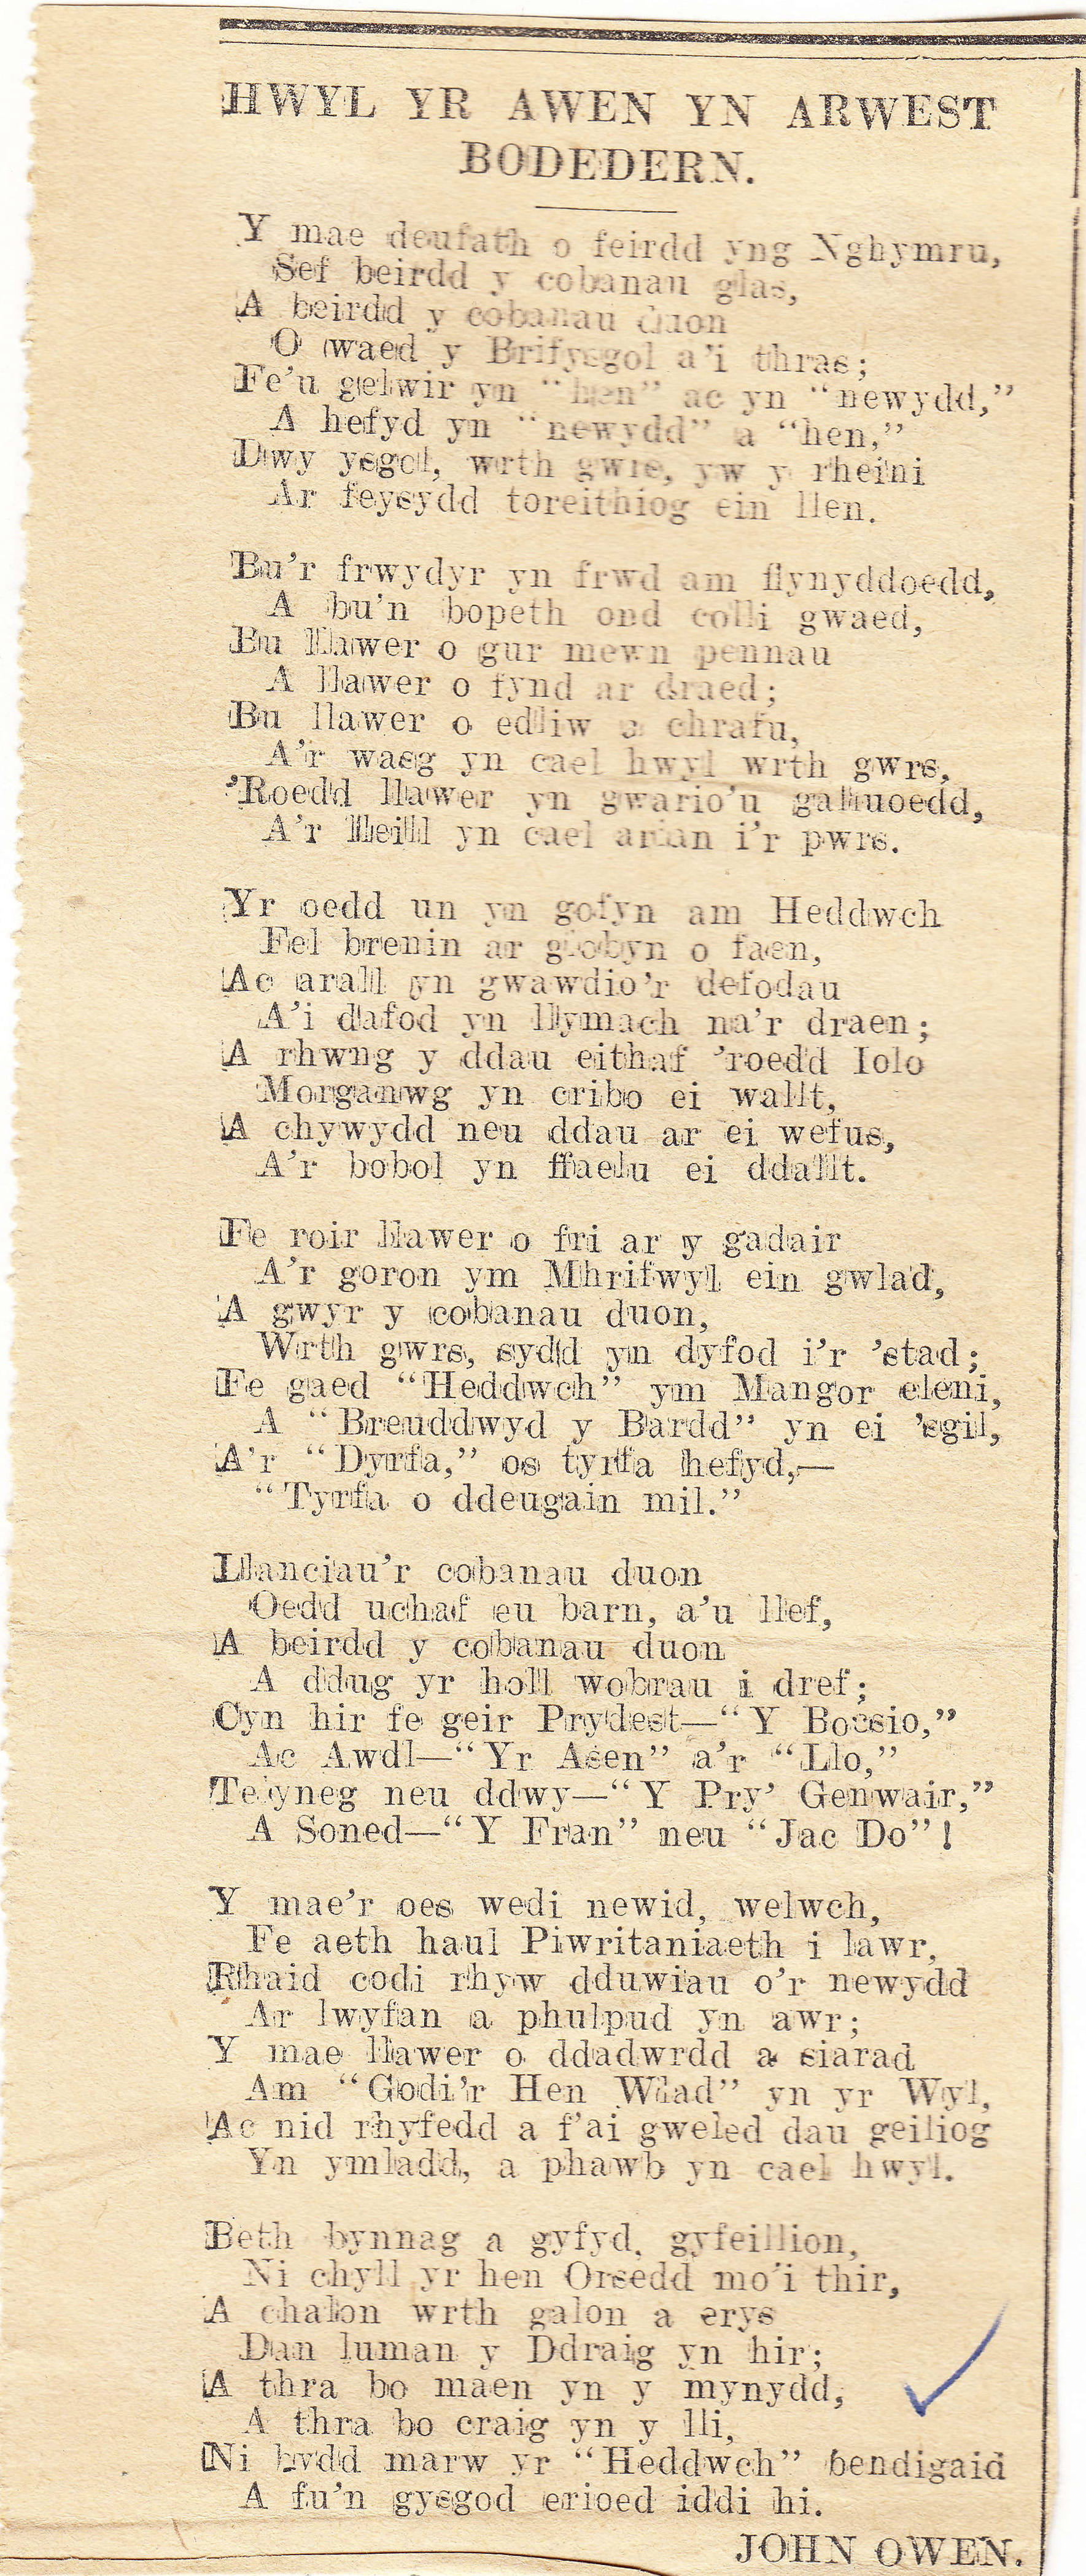 HWYL YR AWEN YN ARWEST
BODEDERN.
Y mae deufath o feirdd yng Nghymru,
Sef beirdd y cobanau glas,
A beirdd y cobanau duon
O waed y Brifysgol a'i thras;
Fe'u gelwir yn "hen" ac yn "newydd,"
A hefyd yn "newydd" a "hen,"
Dwy ysgol, wrth gwrs, yw y rheini
Ar feysydd toreithiog ein llen.
Bu'r frwydyr yn frwd am flynyddoedd,
A bu'n bopeth ond colli gwaed,
Bu llawer o gur mewn pennau
A llawer o fynd ar draed;
Bu llawer o edliw a chrafu,
A'r wasg yn cael hwyl wrth gwrs,
'Roedd llawer yn gwario'u galluoedd,
A'r lleill yn cael arian i'r pwrs.
Yr oedd un yn gofyn am Heddwch
Fel brenin ar globyn o faen,
Ac arall yn gwawdio'r defodau
A'i dafod yn llymach na'r draen;
A rhwng y ddau eithaf 'roedd Iolo
Morganwg yn cribo ei wallt,
A chywydd neu ddau ar ei wefus,
A'r bobol yn ffaelu ei ddallt.
Fe roir llawer o fri ar y gadair
A'r goron ym Mhrifwyl ein gwlad,
A gwyr y cobanau duon,
Wrth gwrs, sydd yn dyfod i'r 'stad;
Fe gaed "Heddwch" ym Mangor eleni,
A "Breuddwyd y Bardd" yn ei 'sgil,
A'r "Dyrfa," os tyrfa hefyd,—
"Tyrfa o ddeugain mil."
Llanciau'r cobanau duon
Oedd uchaf eu barn, a'u llef,
A beirdd y cobanau duon
A ddug yr holl wobrau i dref;
Cyn hir fe geir Prydest—"Y Bocsio,"
Ac Awdl—"Yr Asen" a'r "Llo,"
Telyneg neu ddwy—"Y Pry' Genwair,"
A Soned—"Y Fran" neu "Jac Do"!
Y mae'r oes wedi newid, welwch,
Fe aeth haul Piwritaniaeth i lawr,
Rhaid codi rhyw dduwiau o'r newydd
Ar lwyfan a phulpud yn awr;
Y mae llawer o ddadwrdd a siarad
Am "Godi'r Hen Wlad" yn yr Wyl,
Ac nid rhyfedd a f'ai gweled dau geiliog
Yn ymladd, a phawb yn cael hwyl.
Beth bynnag a gyfyd, gyfeillion,
Ni chyll yr hen Orsedd mo'i thir,
A chalon wrth galon a erys
Dan luman y Ddraig yn hir;
A thra bo maen yn y mynydd,
A thra bo craig yn y lli,
Ni bydd marw yr "Heddwch" bendigaid
A fu'n gysgod erioed iddi hi.
JOHN OWEN.